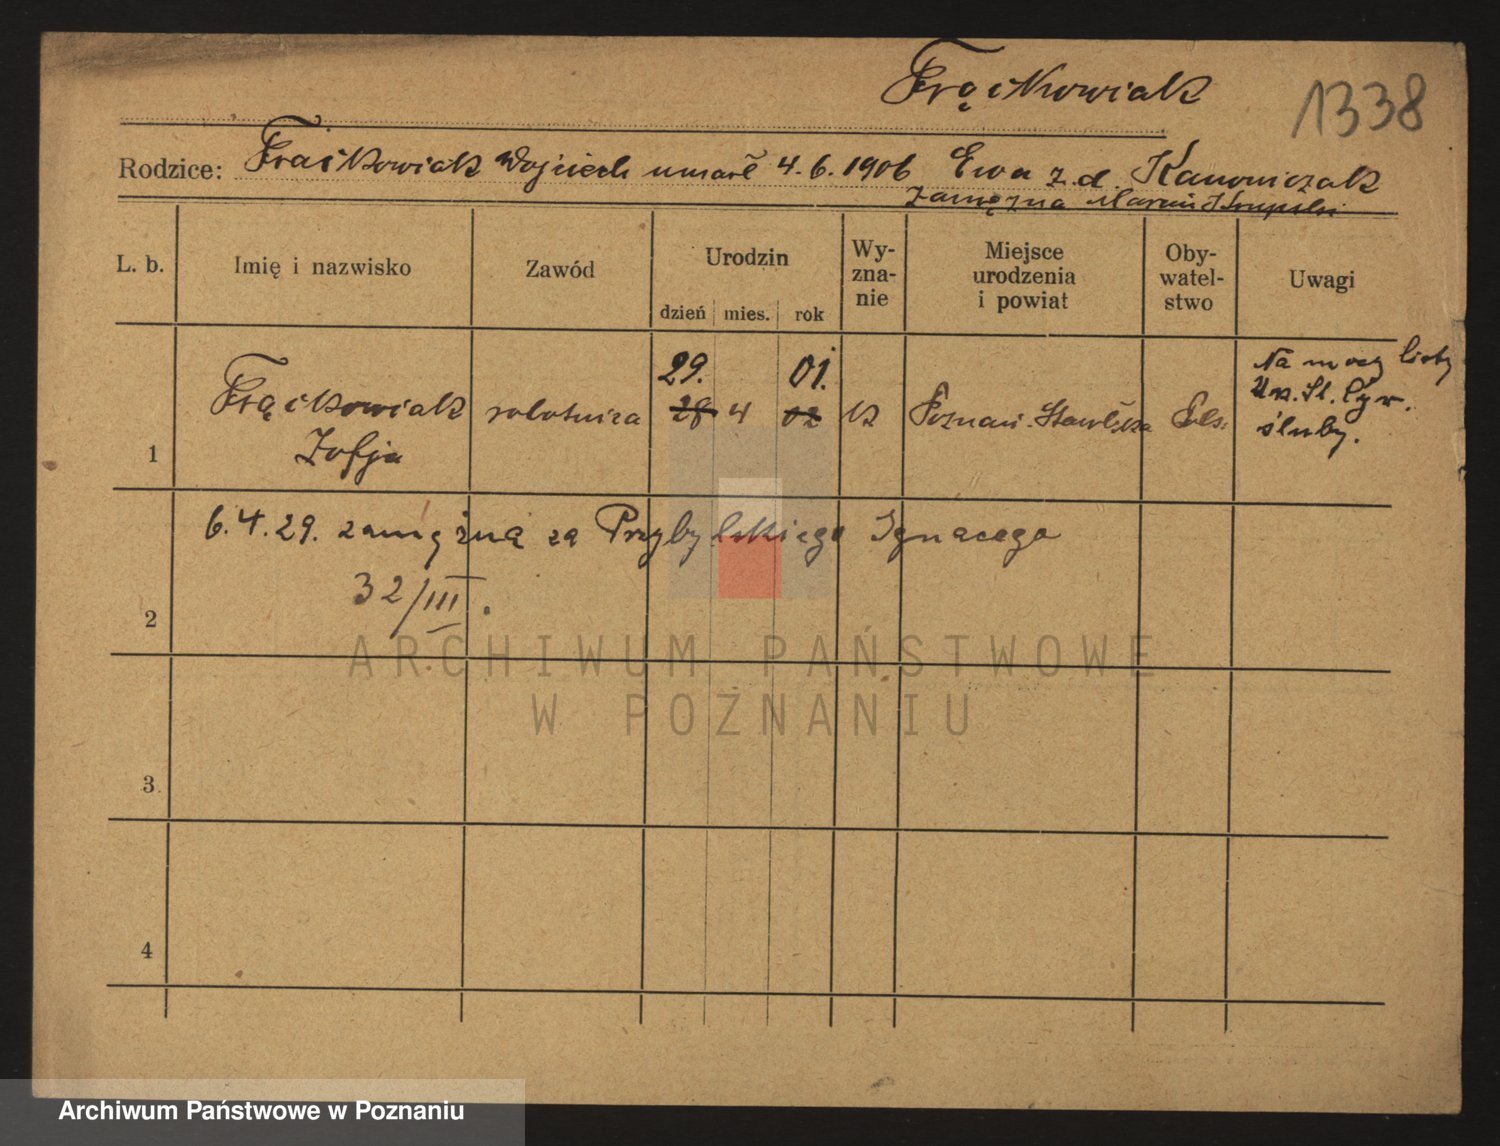 Frąckowiak
1338
Rodzice: Frąckowiak Wojciech umarł 4.6.1906 Ewa z.d. Kanoniczak
zamężna Marcin Krupski
L. b. Imię i nazwisko Zawód Urodzin Wy-zna-nie Miejsce urodzenia i powiat Oby-watel-stwo Uwagi
dzień mies. rok
29. 01. Na mocy listy
Frąckowiak robotnica 28 4 02 k Poznań - Stawł Pols. Urz. St. Cyw.
1 Zofja śluby.
6.4.29. zamężna za Przybylskiego Ignacego
32/III.
2
ARCHIWUM PAŃSTWOWE
W POZNANIU
3
4
Archiwum Państwowe w Poznaniu